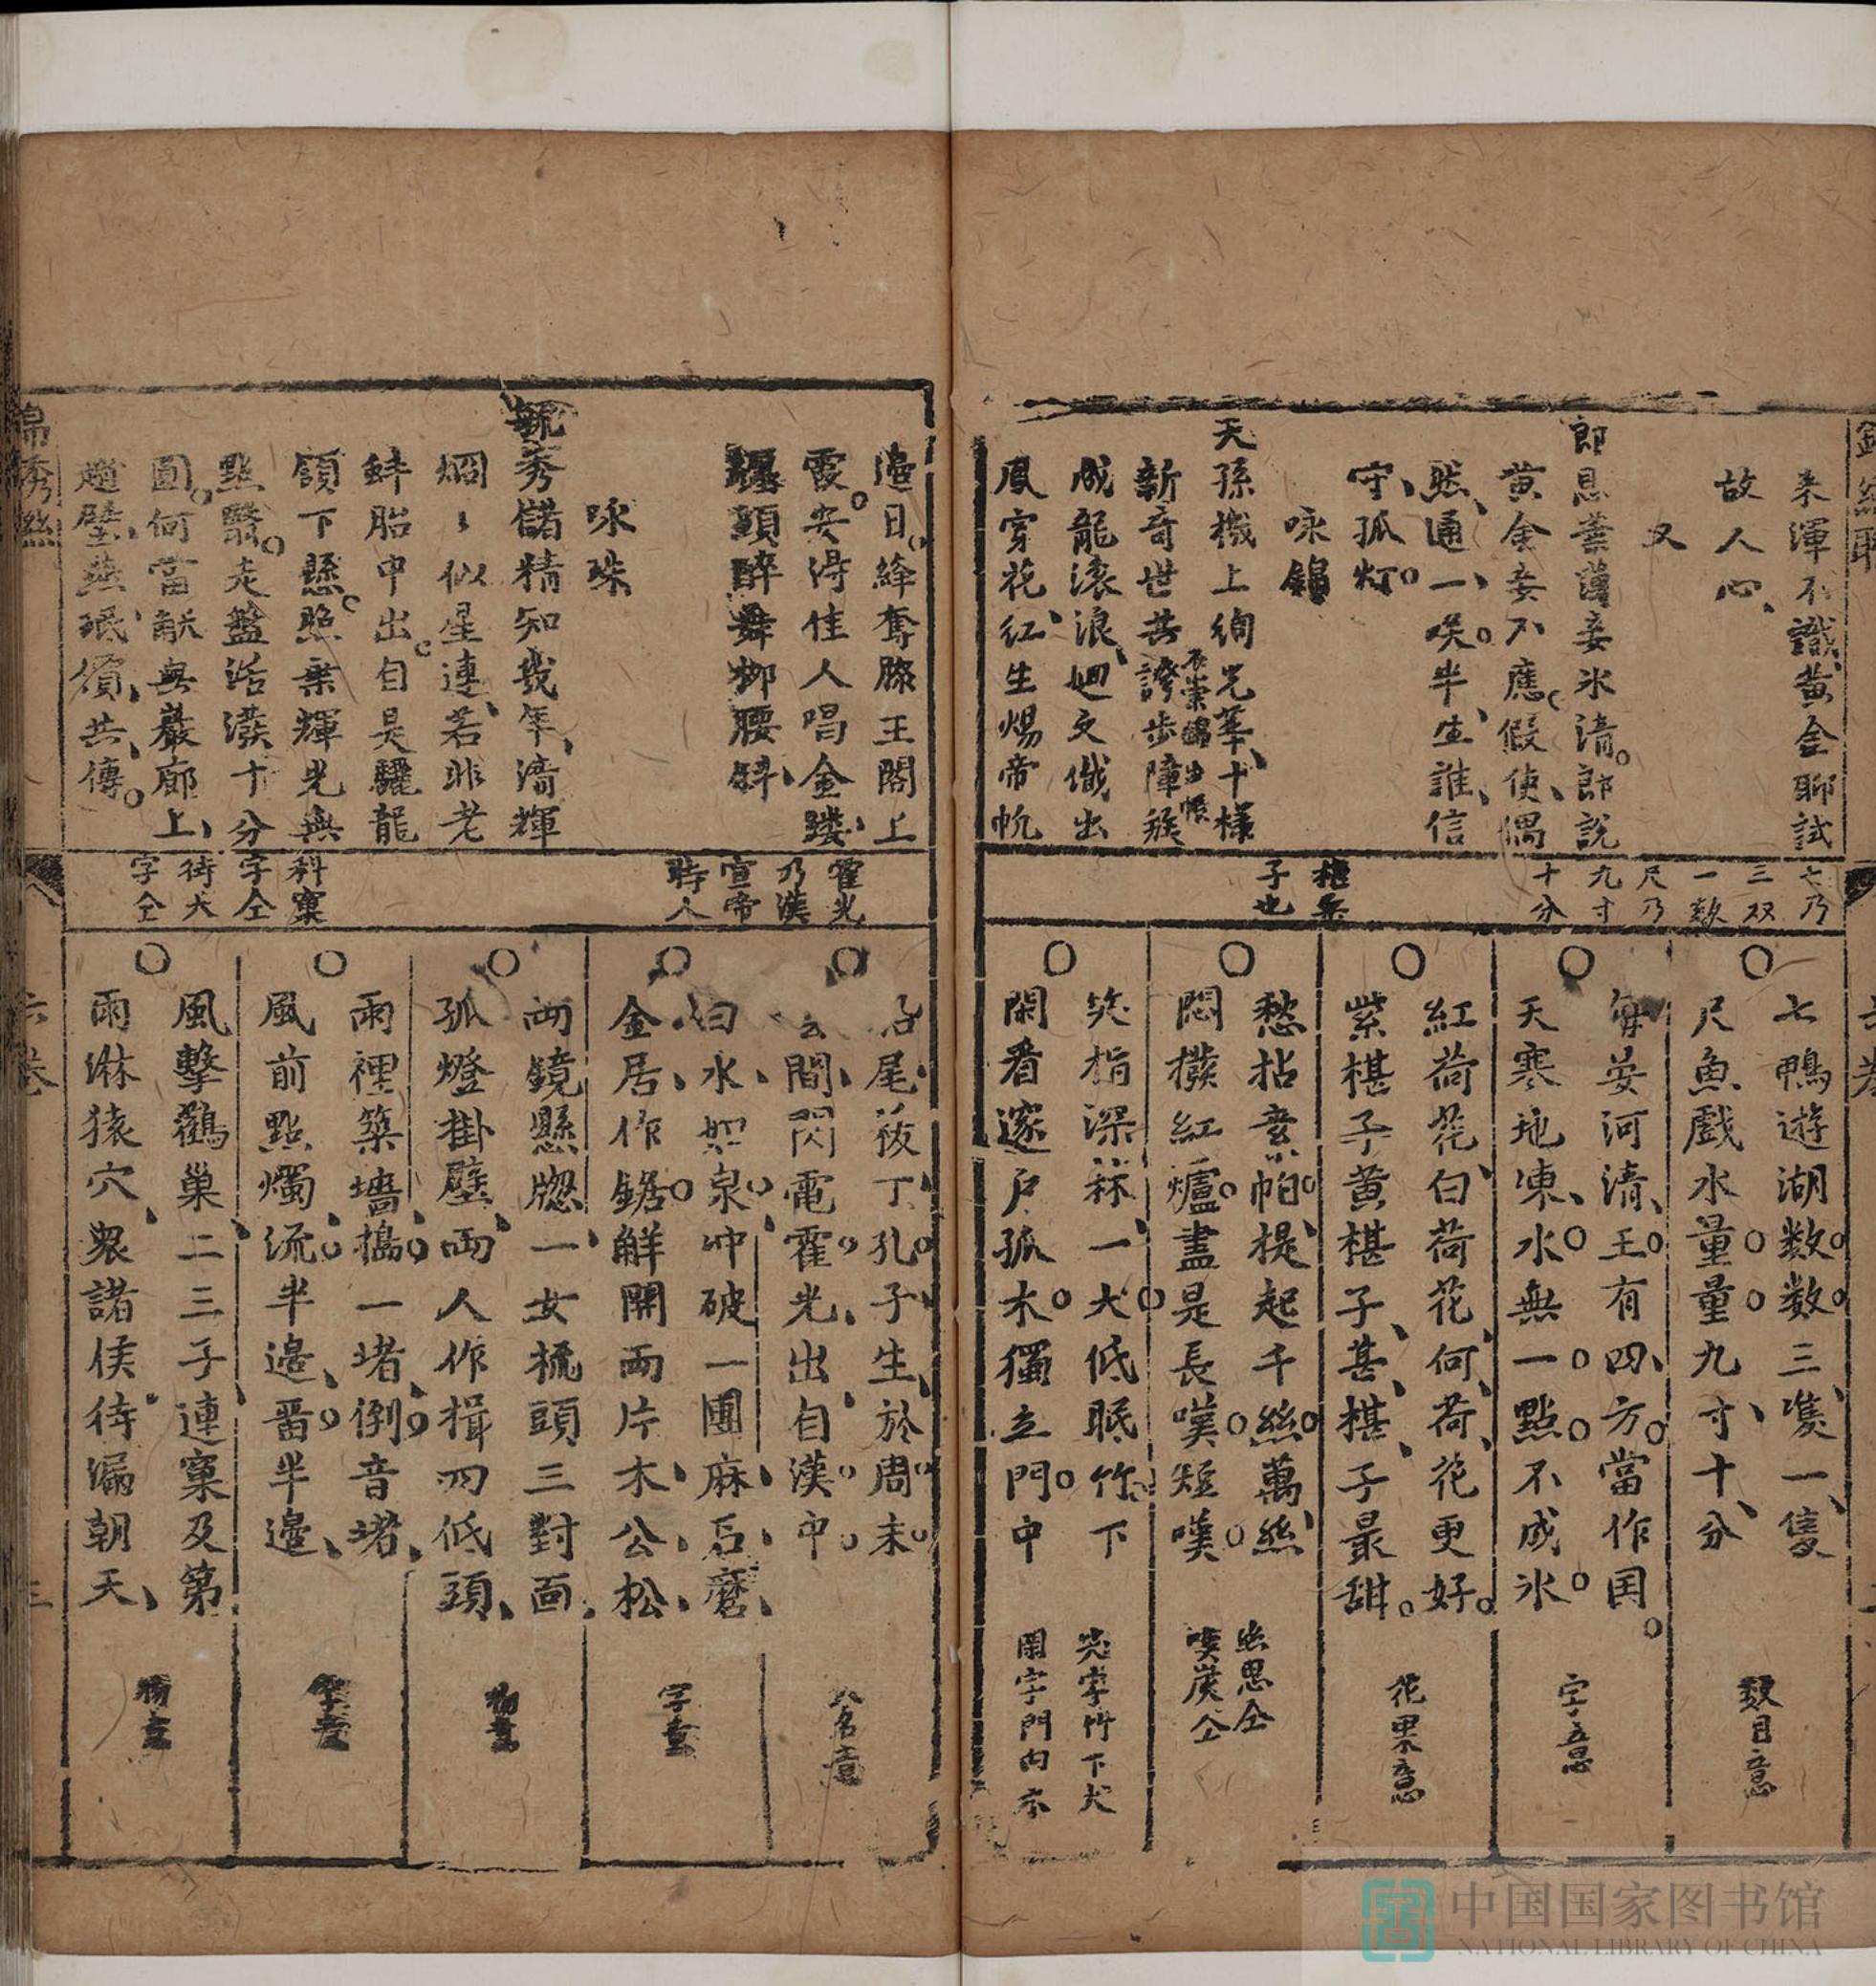 来渾不識黄金聊試
故人心
又
郎思葉薄妾氷清郎説
黄金妾不應假使偶
然通一咲半生誰信
守孤灯
咏錦
天孫機上絢光華十様
新奇世共誇步障簇
成龍滚浪廻文儎出
鳳穿花紅生煬帝帆
七乃
三双
一数
尺乃
九寸
十分
子也
七鴨遊湖数数三䨇一隻
尺魚戲水量量九寸十分
數目意
每晏河清王有四方當作国
天寒地凍水無一點不成氷
字意
紅荷花白荷花何荷花更好
紫椹子黄椹子甚椹子最甜
花果意
愁拈素帕提起千絲萬絲
悶撥紅爐盡是長嘆短嘆
絲思仝
嘆炭仝
笑指深林一犬低眠竹下
閑看邃户孤木獨立門中
笑字竹下犬
閑字門内木
邉日絳奪滕王閣上
霞安淂佳人唱金蹘
纒頭醉舞柳腰斜
咏珠
毓秀儲精知我年濇輝
烱〻似星連若非老
蚌胎中出自是驪龍
頷下懸照乗輝光無
點翳走盤活潑十分
圓何當献與巖廊上
趙璧燕珉價共傳
霍光
乃漢
宣帝
時人
科窠
字仝
待大
字仝
名尾筱丁孔子生於周末
云間閃電霍光出自漢中
人名意
臼水如泉冲破一團麻石麿
金居作鋸觧開両片木公松
字意
両鏡懸牎一女梳頭三對面
孤燈掛壁両人作揖四低頭
物意
雨裡築墻搗一堵倒音堵
風前點燭流半邉畱半邉
風擊鸛巢二三子連窠及第
雨淋猿穴衆諸侯待漏朝天
物意
中国国家图书馆
NATIONAL LIBRARY OF CHINA